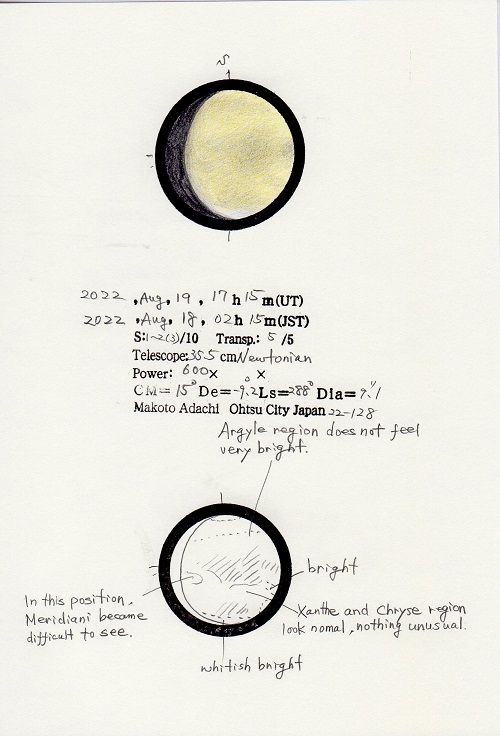 S
2022, Aug, 19, 17h 15m(UT)
2022, Aug, 18, 02h 15m(JST)
S:1~2(3)/10 Transp.: 5 /5
Telescope:35.5cm Newtonian
Power: 600× ×
CM=15° De=-9.2 Ls=288° Dia=9.″1
Makoto Adachi Ohtsu City Japan 22-128
Argyle region does not feel
very bright.
bright
In this position,
Meridiani became
difficult to see.
Xanthe and Chryse region
look nomal, nothing unusual.
whitish bright